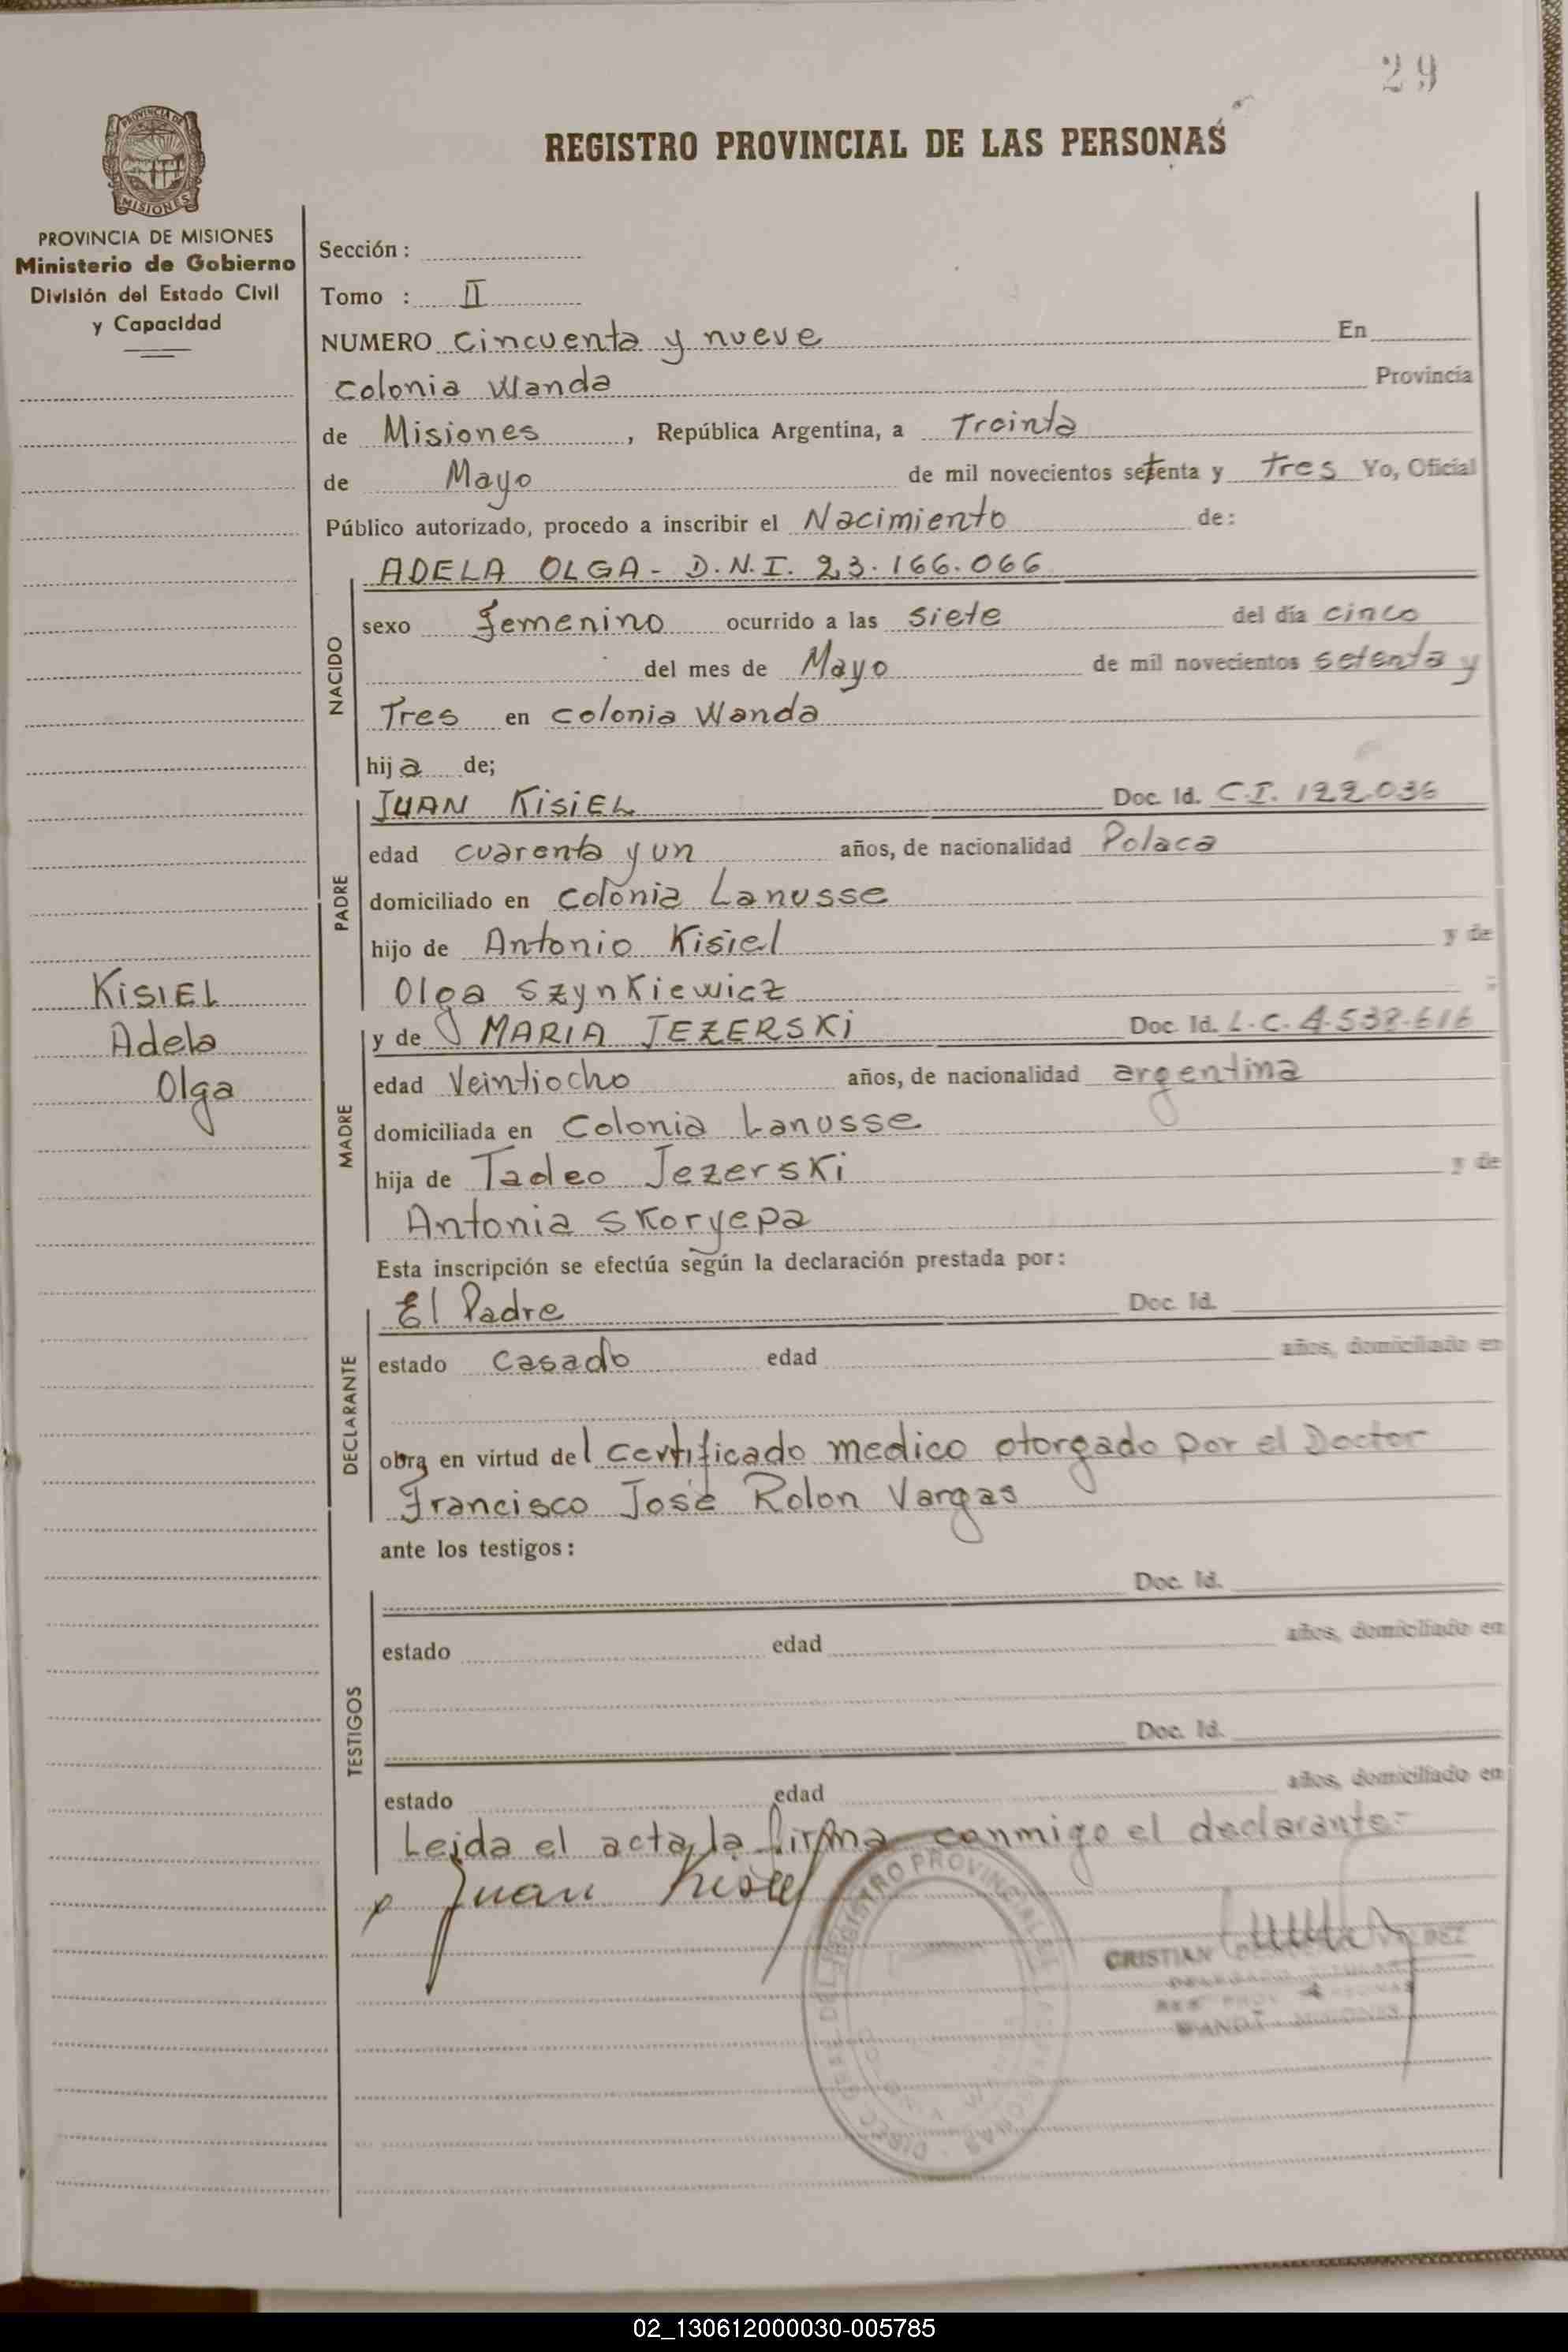 29
REGISTRO PROVINCIAL DE LAS PERSONAS
PROVINCIA DE
MISIONES
PROVINCIA DE MISIONES
Ministerio de Gobierno
División del Estado Civil
y Capacidad
Sección :
Tomo : II
NUMERO cincuenta y nueve En
Colonia Wanda Provincia
de Misiones , República Argentina, a Treinta
de Mayo de mil novecientos setenta y tres Yo, Oficial
Público autorizado, procedo a inscribir el Nacimiento de:
NACIDO
ADELA OLGA - D.N.I. 23.166.066
sexo femenino ocurrido a las siete del día cinco
del mes de Mayo de mil novecientos setenta y
Tres en colonia Wanda
hija de;
PADRE
JUAN KISIEL Doc. Id. C.I. 122.036
edad cuarenta y un años, de nacionalidad Polaca
domiciliado en Colonia Lanusse
hijo de Antonio Kisiel y de
Olga Szynkiewicz
KISIEL
Adela
Olga
MADRE
y de MARIA JEZERSKI Doc. Id. L.C. 4.538.616
edad Veintiocho años, de nacionalidad argentina
domiciliada en Colonia Lanusse
hija de Tadeo Jezerski y de
Antonia Skoryepa
Esta inscripción se efectúa según la declaración prestada por:
DECLARANTE
El Padre Doc. Id.
estado casado edad años, domiciliado en
obra en virtud del certificado medico otorgado por el Doctor
Francisco José Rolon Vargas
ante los testigos:
TESTIGOS
Doc. Id.
estado edad años, domiciliado en
Doc. Id.
estado edad años, domiciliado en
Leida el acta, la firma conmigo el declarante.-
x Juan Kisiel
REGISTRO PROVINCIAL DE LAS PERSONAS
CRISTIAN
WANDA MISIONES
02_130612000030-005785